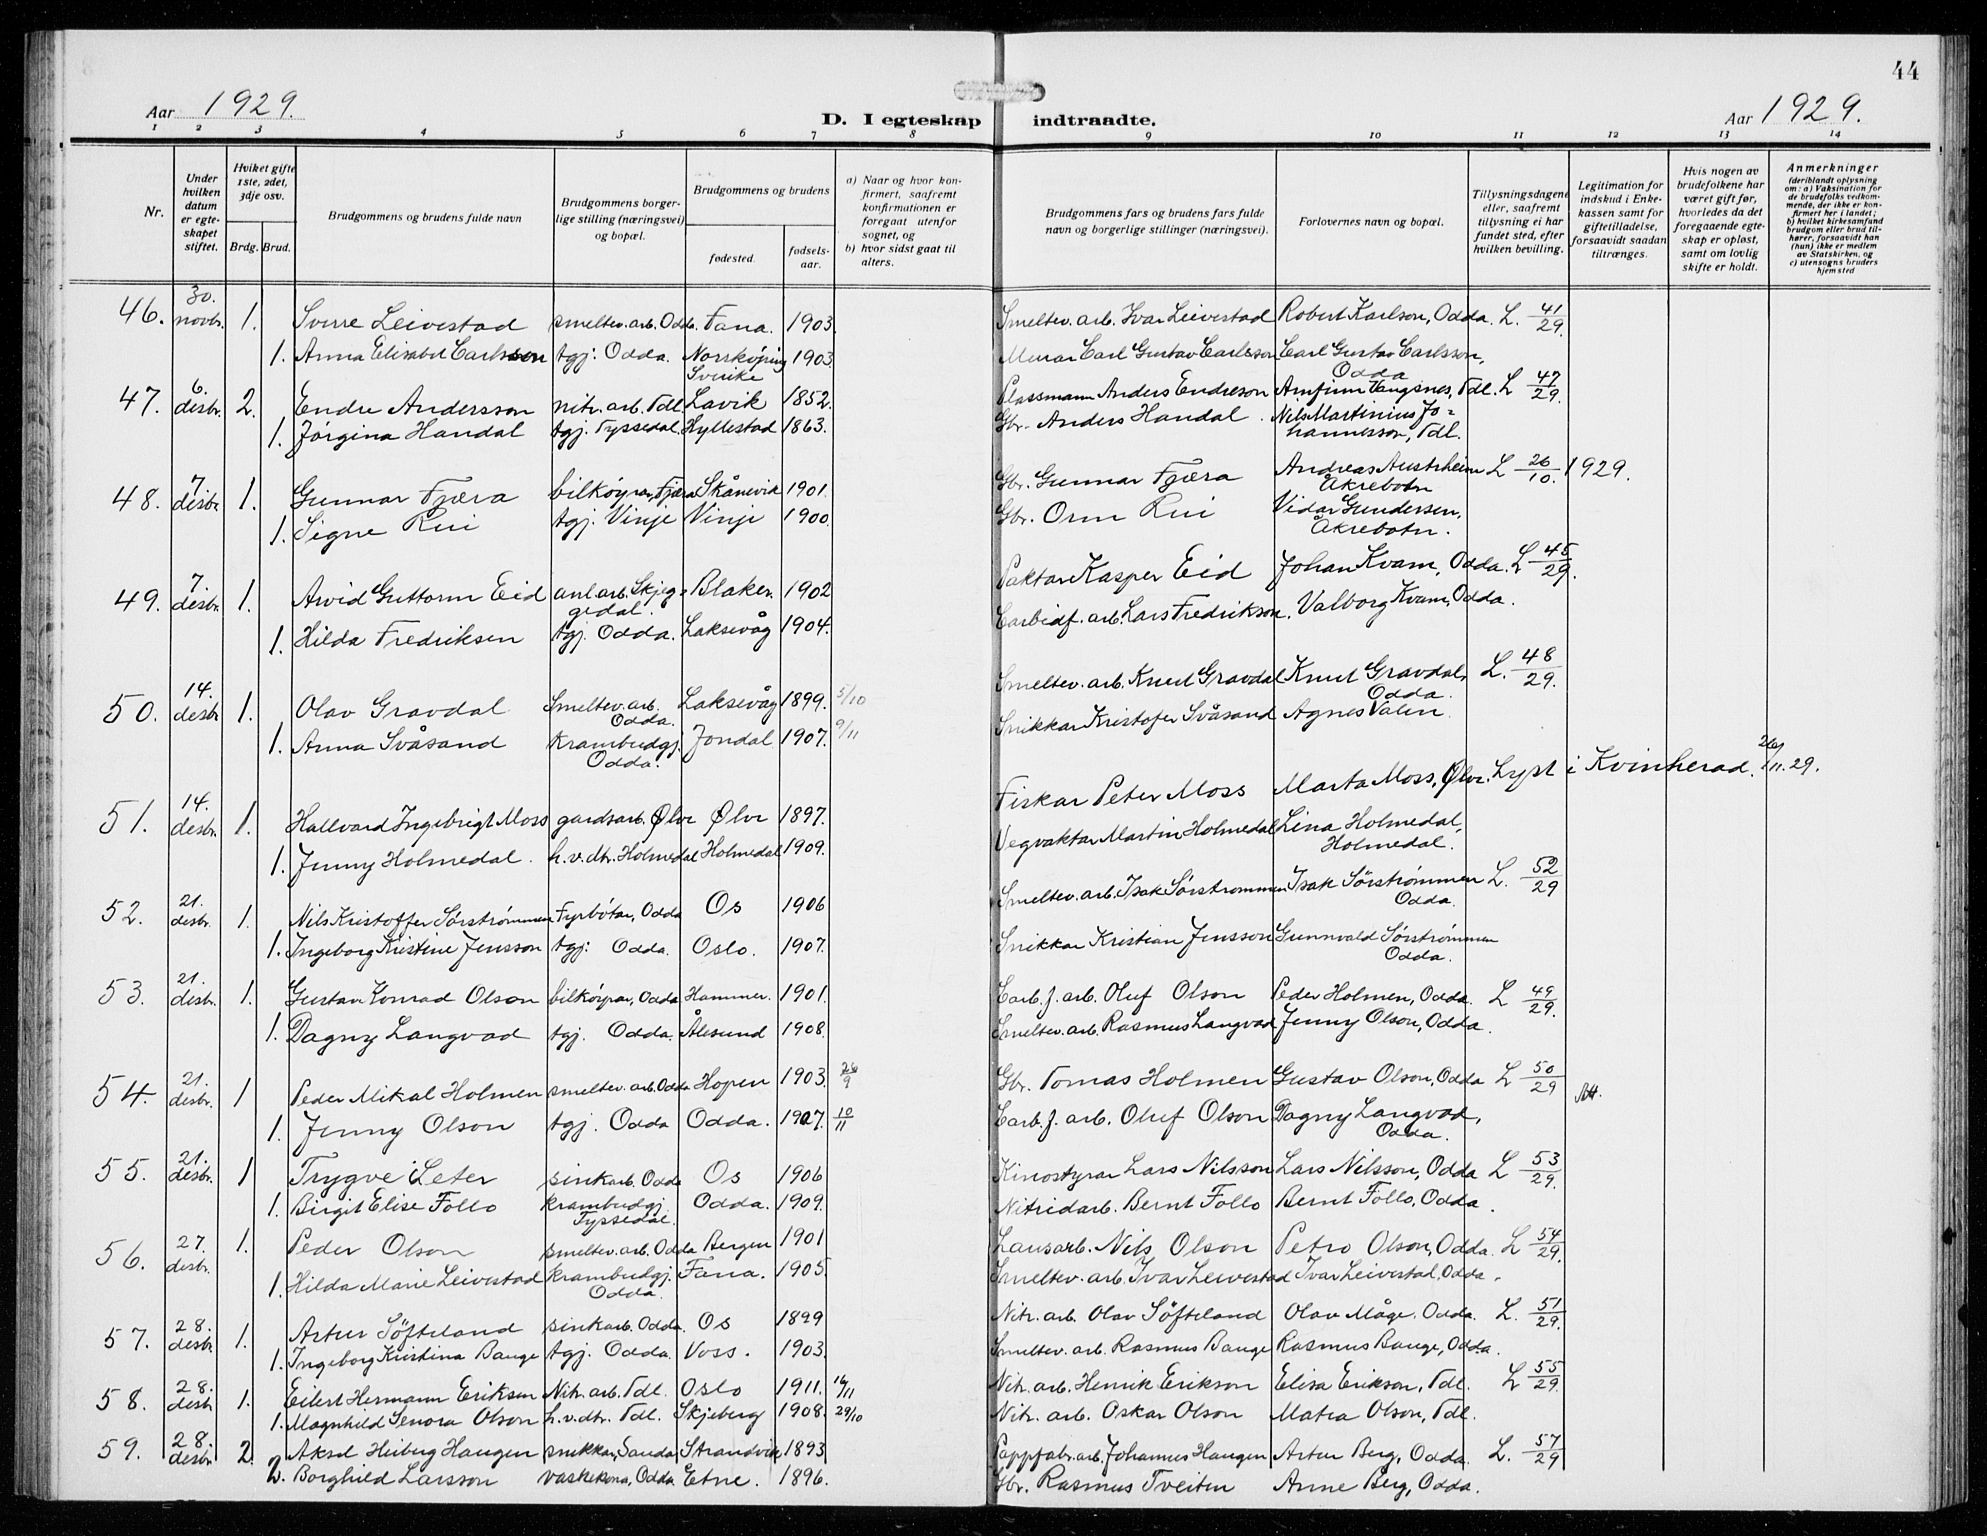 44
Aar 1929.
D. I egteskap indtraadte.
Aar 1929.
1 2 3 4 5 6 7 8 9 10 11 12 13 14
Nr.
Under hvilken datum er egteskapet stiftet.
Hviket gifte 1ste, 2det, 3dje osv.
Brdg. Brud.
Brudgommens og brudens fulde navn
Brudgommens borgerlige stilling (næringsvei) og bopæl.
Brudgommens og brudens
fødested.
fødselsaar.
a) Naar og hvor konfirmert, saafremt konfirmationen er foregaat utenfor sognet, og
b) hvor sidst gaat til alters.
Brudgommens fars og brudens fars fulde navn og borgerlige stillinger (næringsvei).
Forlovernes navn og bopæl.
Tillysningsdagene eller, saafremt tillysning ei har fundet sted, efter hvilken bevilling.
Legitimation for indskud i Enkekassen samt for giftetilladelse, forsaavidt saadan tiltrænges.
Hvis nogen av brudefolkene har været gift før, hvorledes da det foregaaende egteskap er opløst, samt om lovlig skifte er holdt.
Anmerkninger (deriblandt oplysning om: a) Vaksination for de brudefolks vedkommende, der ikke er konfirmert her i landet; b) hvilket kirkesamfund brudgom eller brud tilhører, forsaavidt han (hun) ikke er medlem av Statskirken, og c) utensogns bruders hjemsted
46. 30. novbr. 1. Sverre Leivestad smeltev. arb. Odda. Fana. 1903. Smeltev. arb. Ivar Leivestad Robert Karlson, Odda. L. 41/29.
1. Anna Elisabet Carlsson tgj. Odda. Norrköping Sverike 1903. Murar Carl Gustav Carlsson Carl Gustav Carlsson, Odda
47. 6. desbr. 2. Endre Andersson nitr. arb. Tdl. Lavik 1852. Plassmann Anders Endreson Arnfinn Vangsnes, Tdl. L 47/29.
1. Jørgina Handal tgj. Tyssedal. Hyllestad 1863. Gbr. Anders Handal. Nils Martinius Johannesson, Tdl.
48. 7. desbr. 1. Gunnar Fjæra bilköyrar, Fjæra Skånevik 1901. Gbr. Gunnar Fjæra Andreas Austrheim Åkrebotn L 26/10. 1929.
1. Signe Rui tgj. Vinje Vinje 1900. Gbr. Orm Rui Vidar Gundersen, Åkrebotn.
49. 7. desbr. 1. Arvid Guttorm Eid anl. arb. Skjeggedal. Blaker. 1902 Paktar Kasper Eid Johan Kvam, Odda. L 45/29.
1. Hilda Fredriksen tgj. Odda. Laksevåg 1904. Carbidf. arb. Lars Fredrikson. Valborg Kvam, Odda.
50. 14. desbr. 1. Olav Gravdal Smeltev. arb. Odda. Laksevåg 1899. 5/10 Smeltev. arb. Knut Gravdal Knut Gravdal, Odda. L. 48/29.
1. Anna Svåsand Krambudgj. Odda. Jondal 1907. 9/11 Snikkar Kristofer Svåsand Agnes Valen.
51. 14. desbr. 1. Hallvard Ingebrigt Moss gardsarb. Ølve Ølve 1897. Fiskar Peter Moss Marta Moss, Ølve. Lyst i Kvinherad. 26/11. 29.
1. Jenny Holmedal. h.v. dtr. Holmedal Holmedal 1909. Vegvaktar Martin Holmedal Lina Holmedal, Holmedal.
52. 21. desbr. 1. Nils Kristoffer Sørstrømmen Fyrbötar, Odda Os 1906 Smeltev. arb. Isak Sørstrømmen Isak Sørstrømmen Odda. L. 52/29
1. Ingeborg Kristine Jensson tgj: Odda. Oslo. 1907. Snikkar Kristian Jensson Gunnvald Sørstrømmen Odda.
53. 21. desbr. 1. Gustav Konrad Olson bilköyrar, Odda Hammer. 1901. Carb. f. arb. Oluf Olson Peder Holmen, Odda. L 49/29.
1. Dagny Langvad tgj. Odda. Ålesund 1908. Smeltev. arb. Rasmus Langvad Jenny Olson, Odda.
54. 21. desbr. 1 Peder Mikal Holmen smeltev. arb. Odda Hopen 1903. 26/9 Gbr. Tomas Holmen Gustav Olson, Odda L 50/29
1. Jenny Olson tgj. Odda Odda. 1907. 10/11 Carb. f. arb. Oluf Olson Dagny Langvad, Odda.
55. 21. desbr. 1 Trygve Seter sinkarb. Odda Os 1906 Kinostyrar Lars Nilsson Lars Nilsson, Odda L 53/29.
1. Birgit Elise Follo krambudgj. Tyssedal. Odda. 1909. Nitridarb. Bernt Follo Bernt Follo, Odda.
56. 27. desbr. 1. Peder Olson smeltev. arb. Odda Bergen 1901 Lausarb. Nils Olson Petro Olson, Odda. L 54/29.
1. Hilda Marie Leivestad krambudgj. Odda. Fana. 1905 Smeltev. arb. Ivar Leivestad Ivar Leivestad, Odda.
57. 28. desbr. 1. Artur Söfteland sinkarb. Odda. Os 1899 Nitr. arb. Olav Söfteland Olav Måge. Odda. L. 51/29.
1. Ingeborg Kristina Bauge tgj. Odda. Voss. 1903. Smeltev. arb. Rasmus Bauge Rasmus Bauge, Odda.
58. 28. desbr. 1. Eilert Hermann Eriksen Nitr. arb. Tdl. Oslo 1911. Nitr. arb. Henrik Erikson Elisa Erikson, Tdl. L 55/29.
1. Magnhild Senora Olson h.v. dtr. Tdl. Skjeberg 1908. 29/10 Nitr. arb. Oskar Olson Matea Olson, Tdl.
59. 28. desbr. 2. Aksel Heiberg Haugen snikkar, Sauda Strandvik 1893 Pappfabr. arb. Johannes Haugen Artur Berg, Odda. L. 57/29
2. Borghild Larsson vaskekona, Odda Etne. 1896. Gbr. Rasmus Tveiten Anne Berg, Odda.